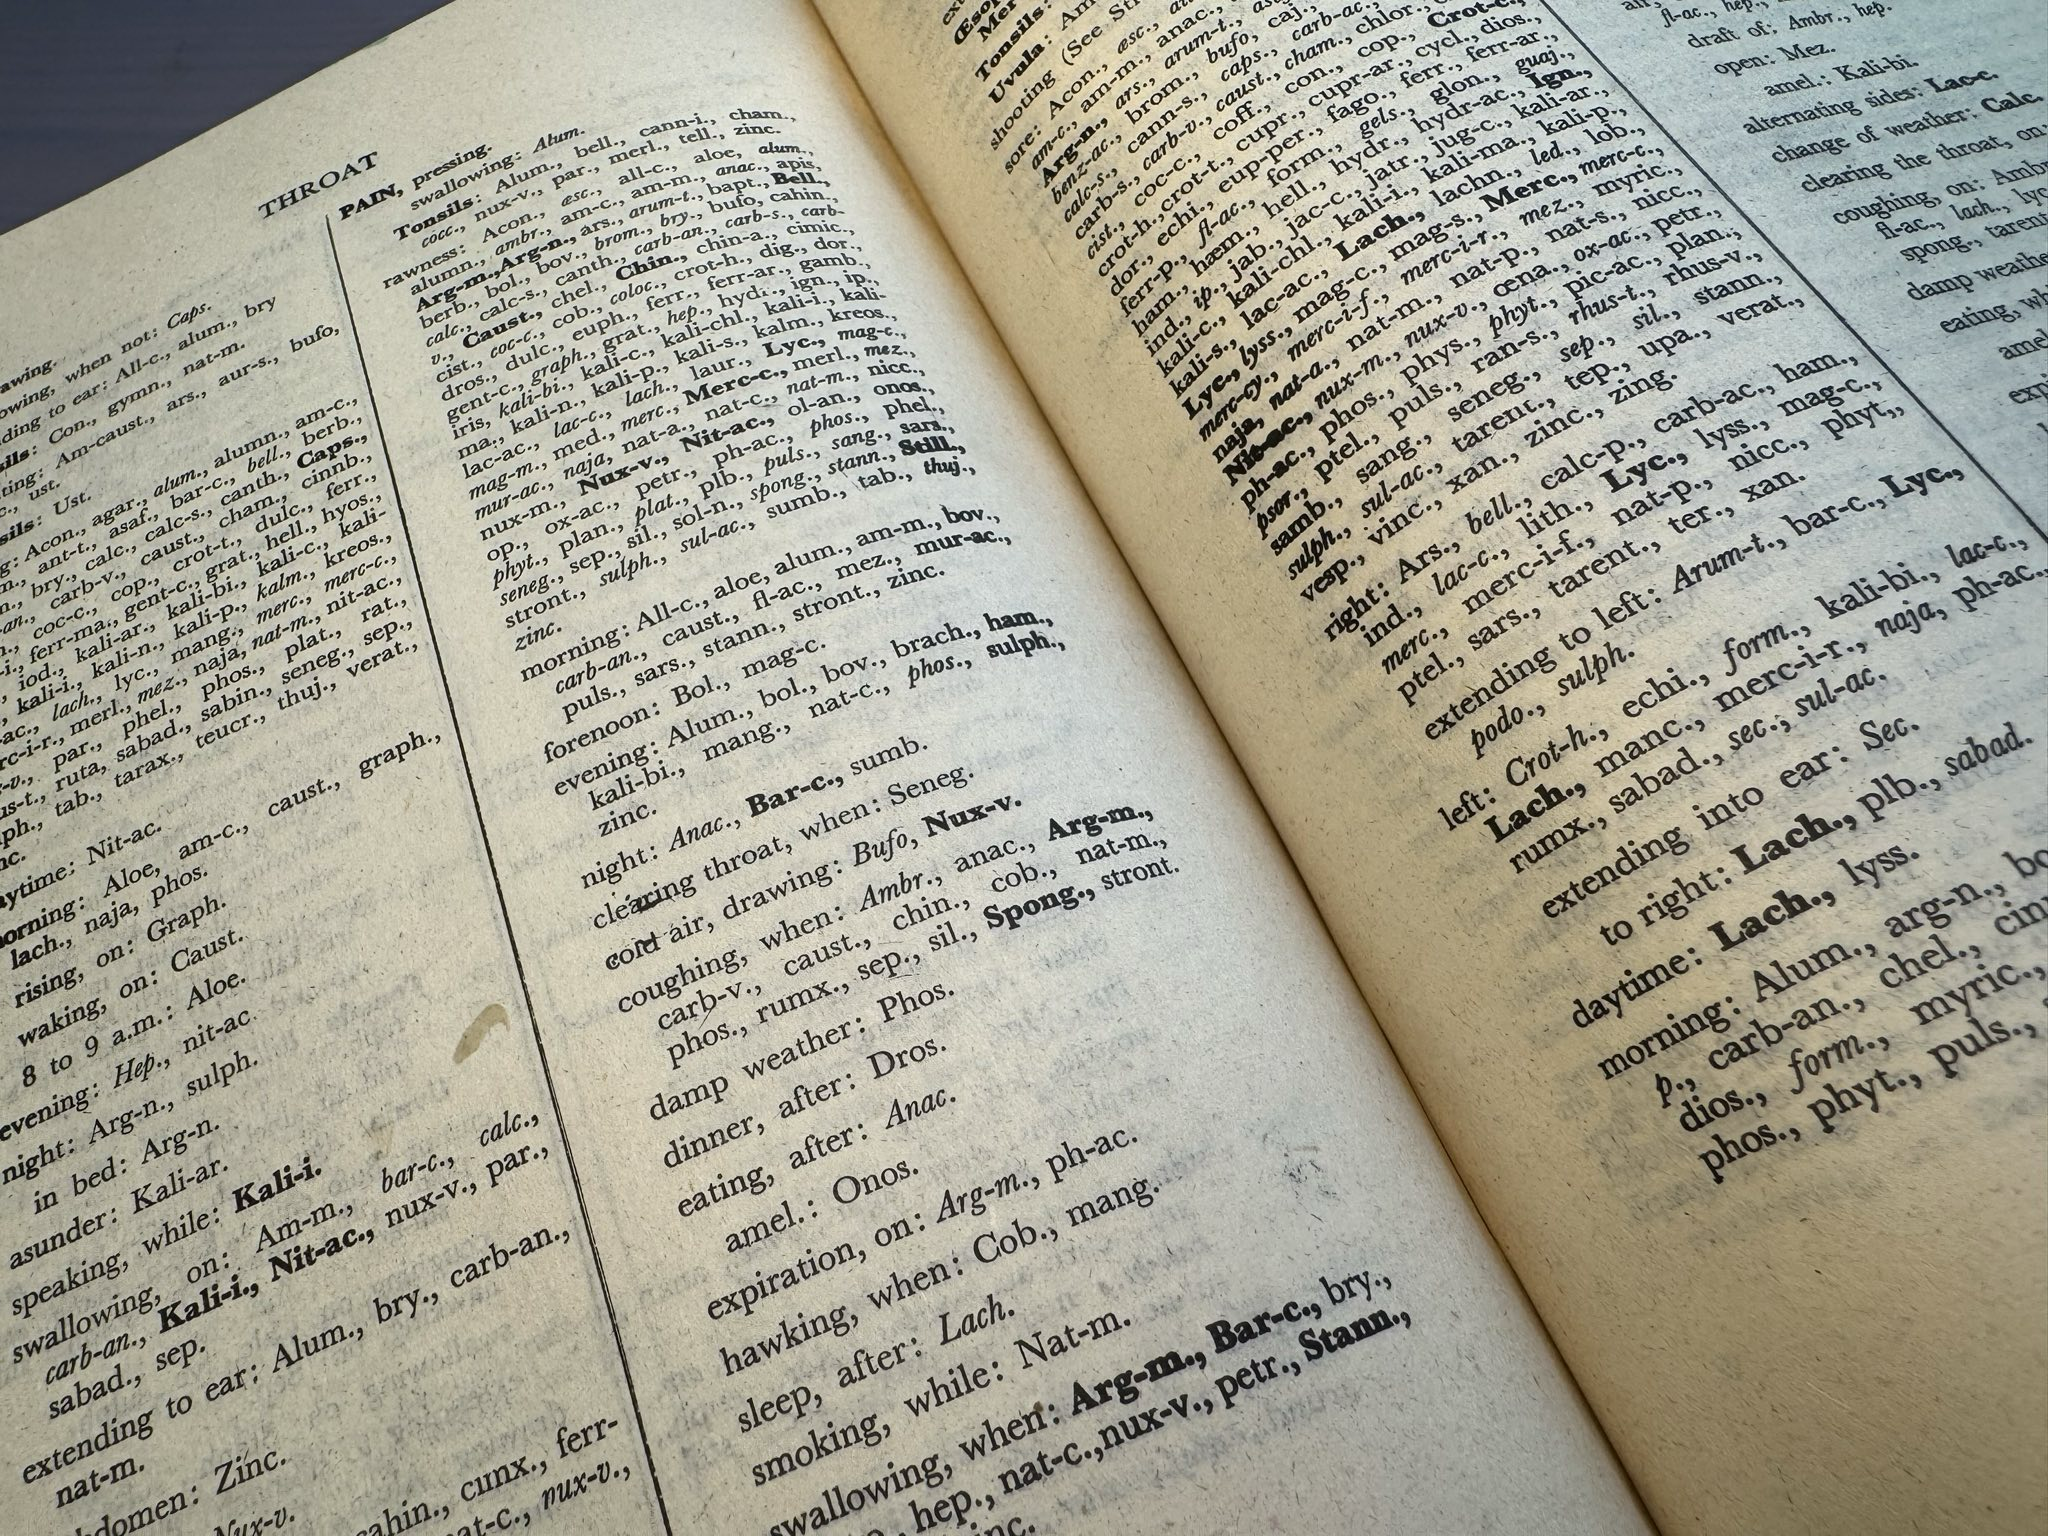 THROAT
awing.
owing, when not: Caps.
ding to ear: All-c., alum., bry
sils: Con., gymn., nat-m.
ting: Am-caust., ars., aur-s., bufo,
ust.
sils: Ust.
g: Acon., agar., alum., alumn., am-c.,
ant-t., asaf., bar-c., bell., berb.,
bry., calc., calc-s., canth., Caps.,
carb-v., caust., cham., cinnb.,
coc-c., cop., crot-t., dulc., ferr.,
ferr-ma., gent-c., grat., hell., hyos.,
iod., kali-ar., kali-bi., kali-c., kali-
kali-i., kali-n., kali-p., kalm., kreos.,
lach., lyc., mang., merc., merc-c.,
merl., mez., naja, nat-m., nit-ac.,
par., phel., phos., plat., rat.,
ruta, sabad., sabin., seneg., sep.,
tab., tarax., teucr., thuj., verat.,
nc.
aytime: Nit-ac.
orning: Aloe, am-c., caust., graph.,
lach., naja, phos.
rising, on: Graph.
waking, on: Caust.
8 to 9 a.m.: Aloe.
evening: Hep., nit-ac.
night: Arg-n., sulph.
in bed: Arg-n.
asunder: Kali-ar.
speaking, while: Kali-i.
swallowing, on: Am-m., bar-c., calc.,
carb-an., Kali-i., Nit-ac., nux-v., par.,
sabad., sep.
extending to ear: Alum., bry., carb-an.,
nat-m.
bdomen: Zinc.
Nux-v.
cahin., cunx., ferr-
nat-c., nux-v.,
PAIN, pressing.
swallowing: Alum.
Tonsils: Alum., bell., cann-i., cham.,
cocc., nux-v., par., merl., tell., zinc.
rawness: Acon., æsc., all-c., aloe, alum.,
alumn., ambr., am-c., am-m., anac., apis,
Arg-m., Arg-n., ars., arum-t., bapt., Bell.,
berb., bol., bov., brom., bry., bufo, cahin.,
calc., calc-s., canth., carb-an., carb-s., carb-
v., Caust., chel., Chin., chin-a., cimic.,
cist., coc-c., cob., coloc., crot-h., dig., dor.,
dros., dulc., euph., ferr., ferr-ar., gamb.,
gent-c., graph., grat., hep., hydr., ign., ip.,
iris, kali-bi., kali-c., kali-chl., kali-i., kali-
ma., kali-n., kali-p., kali-s., kalm., kreos.,
lac-ac., lac-c., lach., laur., Lyc., mag-c.,
mag-m., med., merc., Merc-c., merl., mez.,
mur-ac., naja, nat-a., nat-c., nat-m., nicc.,
nux-m., Nux-v., Nit-ac., ol-an., onos.,
op., ox-ac., petr., ph-ac., phos., phel.,
phyt., plan., plat., plb., puls., sang., sars.,
seneg., sep., sil., sol-n., spong., stann., Still.,
stront., sulph., sul-ac., sumb., tab., thuj.,
zinc.
morning: All-c., aloe, alum., am-m., bov.,
carb-an., caust., fl-ac., mez., mur-ac.,
puls., sars., stann., stront., zinc.
forenoon: Bol., mag-c.
evening: Alum., bol., bov., brach., ham.,
kali-bi., mang., nat-c., phos., sulph.,
zinc.
night: Anac., Bar-c., sumb.
clearing throat, when: Seneg.
cold air, drawing: Bufo, Nux-v.
coughing, when: Ambr., anac., Arg-m.,
carb-v., caust., chin., cob., nat-m.,
phos., rumx., sep., sil., Spong., stront.
damp weather: Phos.
dinner, after: Dros.
eating, after: Anac.
amel.: Onos.
expiration, on: Arg-m., ph-ac.
hawking, when: Cob., mang.
sleep, after: Lach.
smoking, while: Nat-m.
swallowing, when: Arg-m., Bar-c., bry.,
hep., nat-c., nux-v., petr., Stann.,
inc.
Tonsils:
Uvula: Am
shooting (See St
sore: Acon., æsc.,
am-c., am-m., anac.,
Arg-n., ars., arum-t.,
benz-ac., brom., bufo, caj.,
calc-s., cann-s., caps., carb-ac.,
carb-s., carb-v., caust., cham., chlor.,
cist., coc-c., coff., con., cop., Crot-c.,
crot-h., crot-t., cupr., cupr-ar., cycl., dios.,
dor., echi., eup-per., fago., ferr., ferr-ar.,
ferr-p., fl-ac., form., gels., glon., guaj.,
ham., hæm., hell., hydr., hydr-ac., Ign.,
ind., ip., jab., jac-c., jatr., jug-c., kali-ar.,
kali-c., kali-chl., kali-i., kali-ma., kali-p.,
kali-s., lac-ac., Lach., lachn., led., lob.,
Lyc., lyss., mag-c., mag-s., Merc., merc-c.,
merc-cy., merc-i-f., merc-i-r., mez., myric.,
naja, nat-a., nat-m., nat-p., nat-s., nicc.,
Nit-ac., nux-m., nux-v., œna., ox-ac., petr.,
ph-ac., phos., phys., phyt., pic-ac., plan.,
psor., ptel., puls., ran-s., rhus-t., rhus-v.,
samb., sang., seneg., sep., sil., stann.,
sulph., sul-ac., tarent., tep., upa., verat.,
vesp., vinc., xan., zinc., zing.
right: Ars., bell., calc-p., carb-ac., ham.,
ind., lac-c., lith., Lyc., lyss., mag-c.,
merc., merc-i-f., nat-p., nicc., phyt.,
ptel., sars., tarent., ter., xan.
extending to left: Arum-t., bar-c., Lyc.,
podo., sulph.
left: Crot-h., echi., form., kali-bi., lac-c.,
Lach., manc., merc-i-r., naja, ph-ac.,
rumx., sabad., sec., sul-ac.
extending into ear: Sec.
to right: Lach., plb., sabad.
daytime: Lach., lyss.
morning: Alum., arg-n., bo
p., carb-an., chel., cin
dios., form., myric.,
phos., phyt., puls.,
fl-ac., hep.,
draft of: Ambr., hep.
open: Mez.
amel.: Kali-bi.
alternating sides: Lac-c.
change of weather: Calc.
clearing the throat, on:
coughing, on: Ambr
fl-ac., lach., lyc
spong., tarent
damp weathe
eating, wh
amel
expi